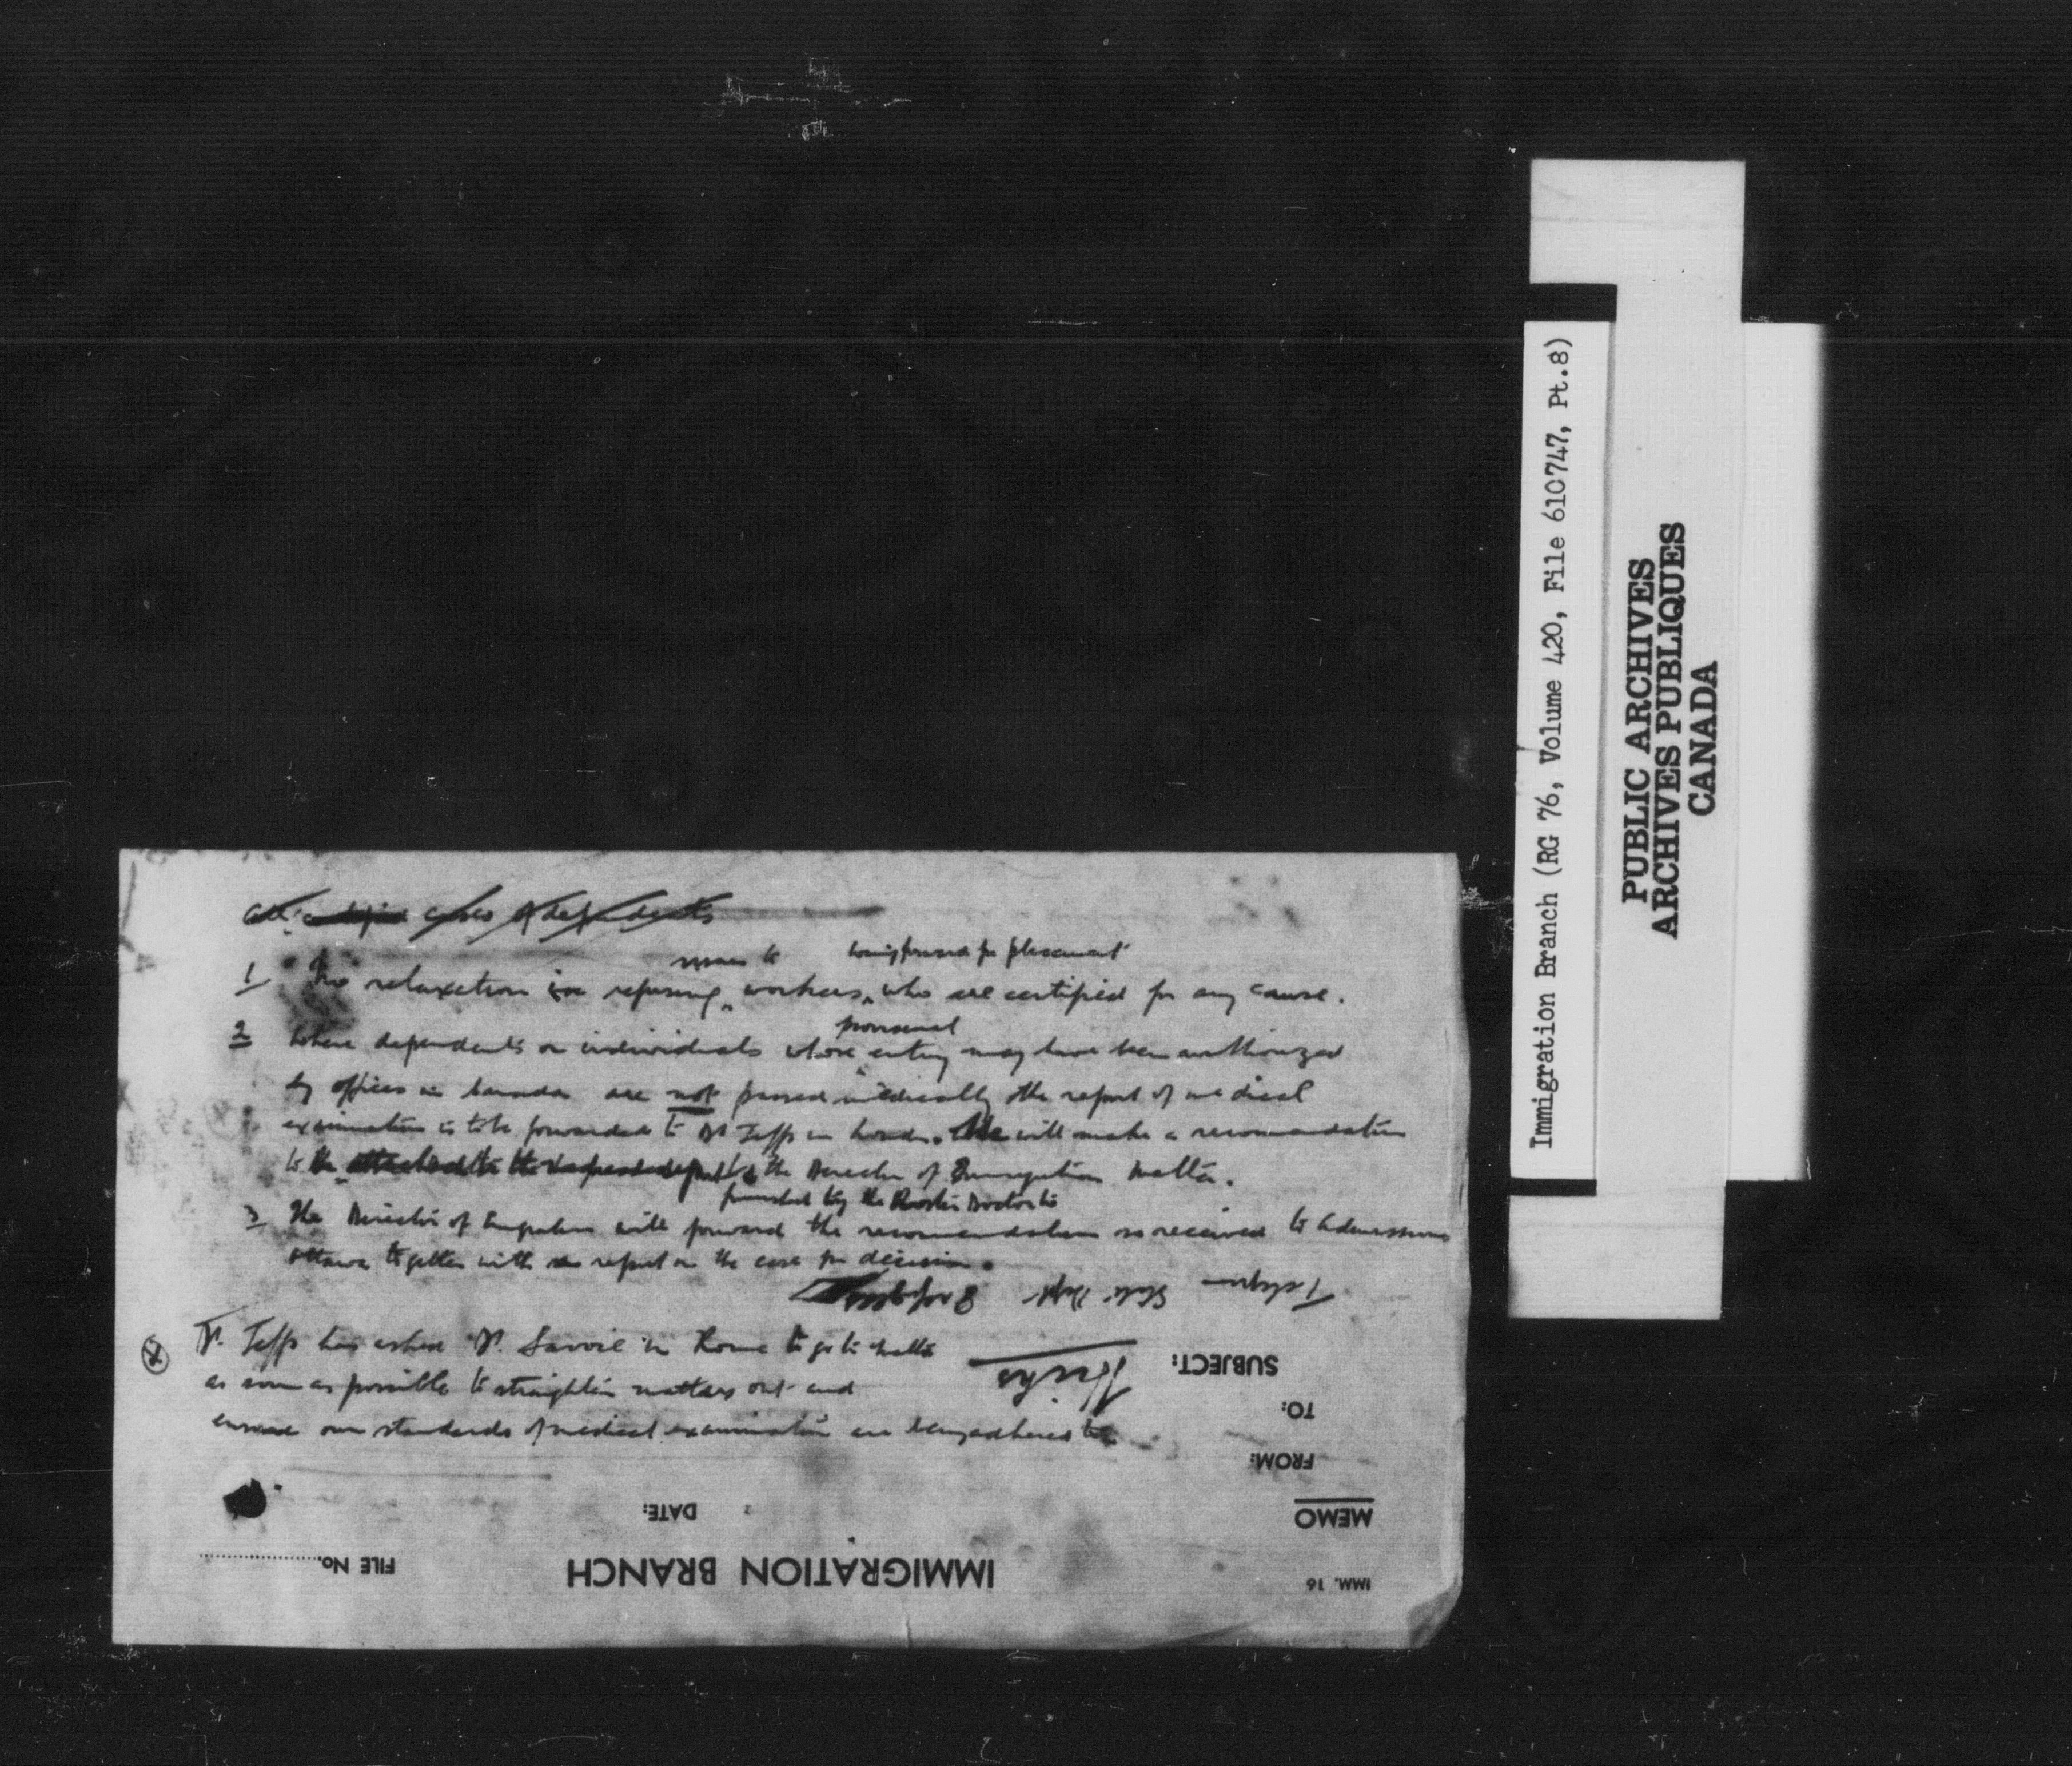 cases of dependents
visas to being passed for placement
1 No relaxation in refusing workers, who are certified for any cause.
provisional
2 Where dependents or individuals whose entry may have been authorized
by offices in Canada are not passed medically the report of medical
examination is to be forwarded to Dr Jeffs in London. He will make a recommendation
to the Director of Emigration Malta.
forwarded by the Doctor to
3 The Director of Emigration will forward the recommendation so received to Admissions
Ottawa together with a report on the case for decision.
Dr. Jeffs has asked Dr. Savoie in Rome to go to Malta
as soon as possible to straighten matters out and
ensure our standards of medical examination are being adhered to
IMM. 16
IMMIGRATION BRANCH
FILE No.
MEMO
DATE:
FROM:
TO:
SUBJECT:
Immigration Branch (RG 76, Volume 420, File 610747, Pt.8)
PUBLIC ARCHIVES
ARCHIVES PUBLIQUES
CANADA